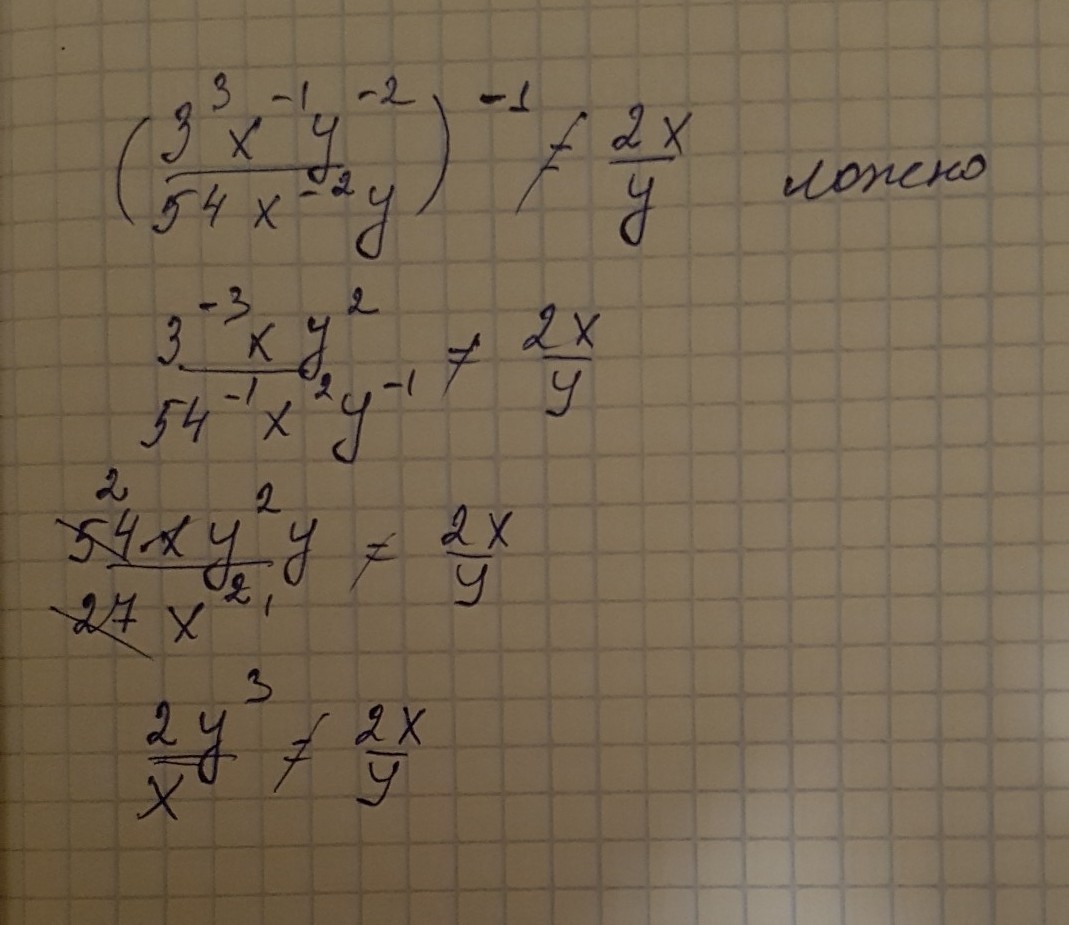 (3³x⁻¹y⁻² / 54x⁻²y)⁻¹ ≠ 2x/y ложно
3⁻³xy² / 54⁻¹x²y⁻¹ ≠ 2x/y
2
54xy²y / 27x²¹ ≠ 2x/y
2y³/x ≠ 2x/y